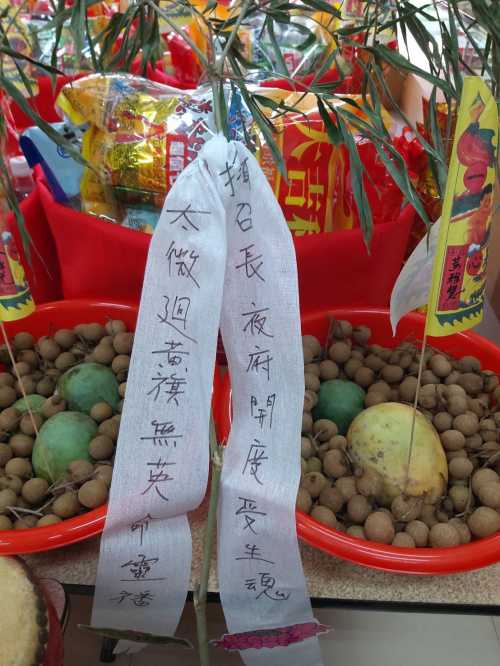 太微迴黃旗無英命靈幡
攝召長夜府開度受生魂
大吉